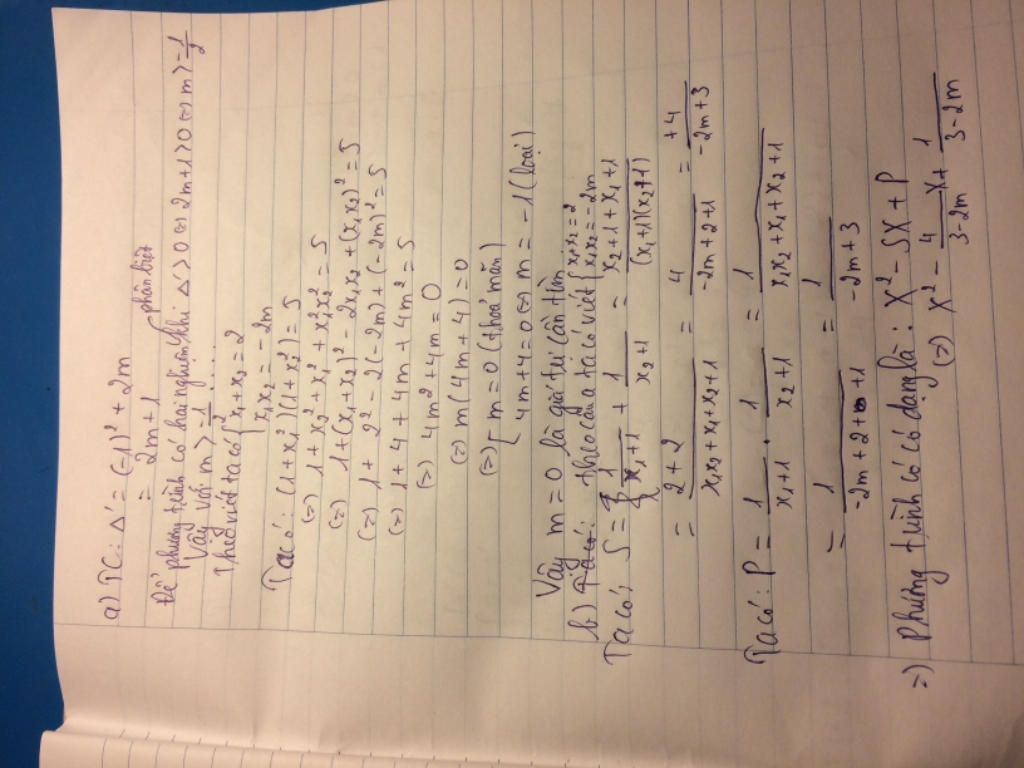 a) TC: Δ' = (-1)² + 2m
= 2m + 1
Để phương trình có hai nghiệm phân biệt khi: Δ' > 0 ⇔ 2m + 1 > 0 ⇔ m > -1/2
Vậy với m > -1/2 .....
Theo viét ta có { x₁ + x₂ = 2
x₁x₂ = -2m
Ta có: (1 + x₁²)(1 + x₂²) = 5
(=) 1 + x₂² + x₁² + x₁²x₂² = 5
(=) 1 + (x₁ + x₂)² - 2x₁x₂ + (x₁x₂)² = 5
(=) 1 + 2² - 2(-2m) + (-2m)² = 5
(=) 1 + 4 + 4m + 4m² = 5
(=) 4m² + 4m = 0
(=) m(4m + 4) = 0
(=) [ m = 0 (thoả mãn)
4m + 4 = 0 ⇔ m = -1 (loại)
Vậy m = 0 là giá trị cần tìm
b) Ta có: theo câu a ta có viét { x₁ + x₂ = 2
x₁x₂ = -2m
Ta có: S = 1/(x₁+1) + 1/(x₂+1) = (x₂ + 1 + x₁ + 1)/((x₁+1)(x₂+1))
= (2 + 2)/(x₁x₂ + x₁ + x₂ + 1) = 4/(-2m + 2 + 1) = +4/(-2m + 3)
Ta có: P = 1/(x₁+1) . 1/(x₂+1) = 1/(x₁x₂ + x₁ + x₂ + 1)
= 1/(-2m + 2 + 1) = 1/(-2m + 3)
=) Phương trình có có dạng là: X² - SX + P
(=) X² - 4/(3-2m) X + 1/(3-2m)